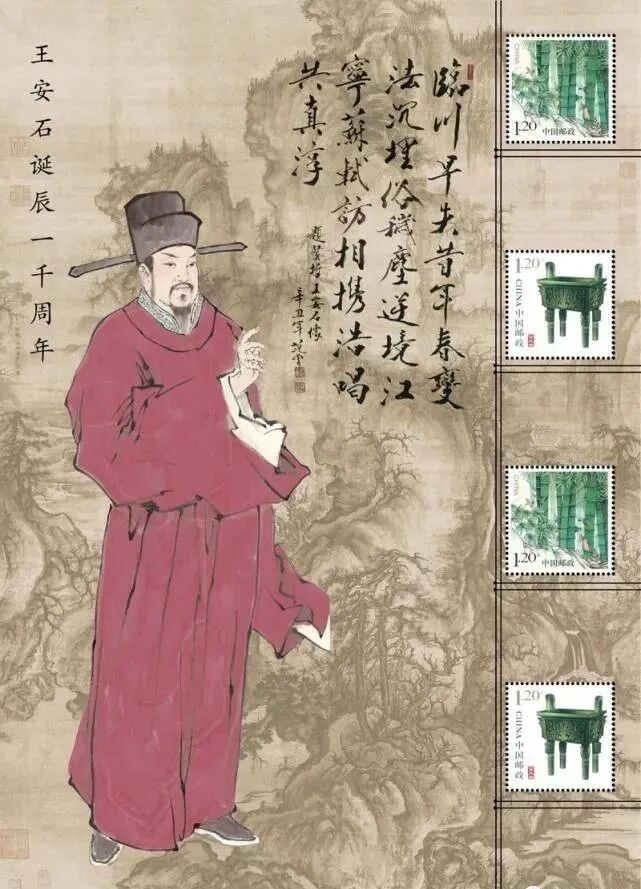 王安石诞辰一千周年
臨川早失昔年春變
法沉埋俗穢塵逆境江
寧蘇軾訪相携浩唱
共真淳
題 王安石像
辛丑年
CHINA
1.20 中国邮政
1.20
CHINA 中国邮政
CHINA
1.20 中国邮政
1.20
CHINA 中国邮政